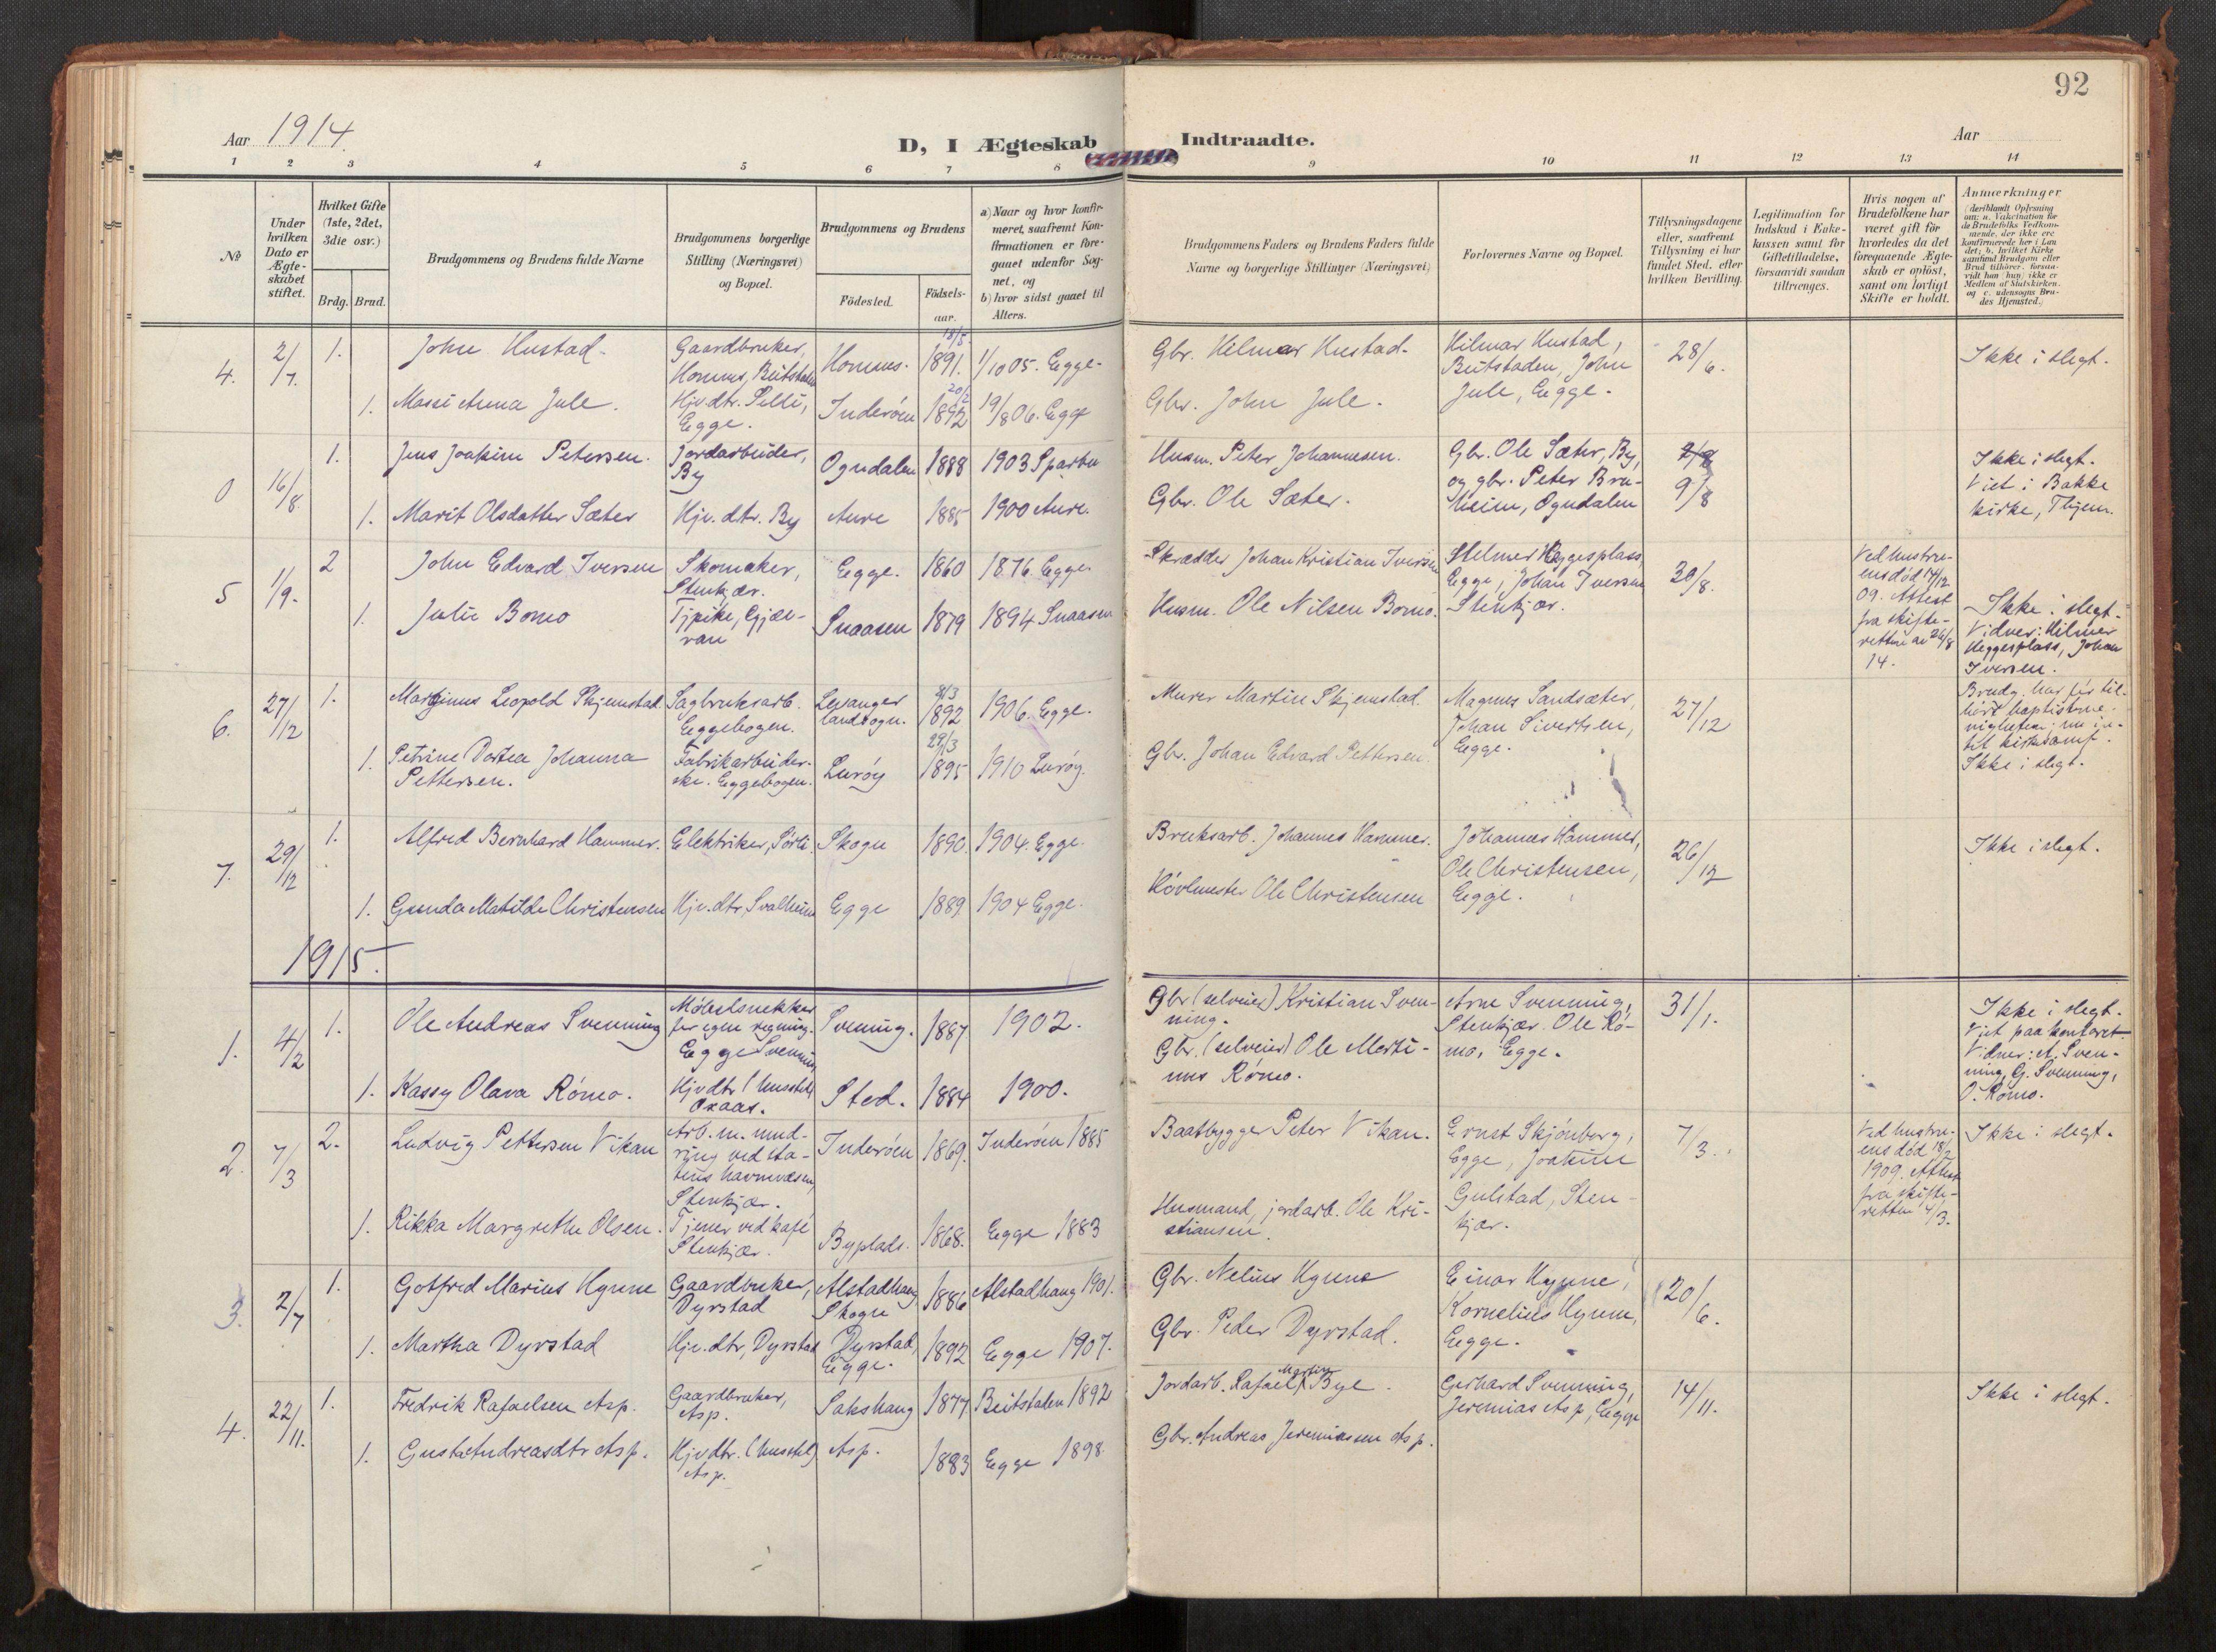 92
Aar 1914.
D, I Ægteskab Indtraadte.
Aar
1 2 3 4 5 6 7 8 9 10 11 12 13 14
No
Under hvilken Dato er Ægteskabet stiftet.
Hvilket Gifte (1ste, 2det, 3die osv.)
Brdg. Brud.
Brudgommens og Brudens fulde Navne
Brudgommens borgerlige Stilling (Næringsvei) og Bopæl.
Brudgommens og Brudens
Födested. Födsels-aar.
a) Naar og hvor konfirmeret, saafremt Konfirmationen er foregaaet udenfor Sognet, og
b) hvor sidst gaaet til Alters.
Brudgommens Faders og Brudens Faders fulde Navne og borgerlige Stillinger (Næringsvei)
Forlovernes Navne og Bopæl.
Tillysningsdagene eller, saafremt Tillysning ei har fundet Sted, efter hvilken Bevilling.
Legitimation for Indskud i Enkekassen samt for Giftetilladelse, forsaavidt saadan tiltrænges.
Hvis nogen af Brudefolkene har været gift för hvorledes da det foregaaende Ægteskab er oplöst, samt om lovligt Skifte er holdt.
Anmærkninger (deriblandt Oplysning om: a. Vakcination for de Brudefolks Vedkommende, der ikke ere konfirmerede her i Landet; b. hvilket Kirkesamfund Brudgom eller Brud tilhörer, forsaavidt han (hun) ikke er Medlem af Statskirken. og c. udensogns Brudes Hjemsted.)
4. 2/7. 1. John Hustad. Gaardbruker, Homnes, Beitstaden Homnes. 18/5 1891. 1/10 05. Egge. Gbr. Hilmar Hustad. Hilmar Hustad, Beitstaden, John Jule, Egge. 28/6. Ikke i slegt.
1. Massi Anna Jule. Hjv. dtr. Selli, Egge. Inderöen 20/2 1892 19/8 06. Egge Gbr. John Jule.
0 16/8. 1. Jens Joakim Petersen. Jordarbeider, By Ogndalen 1888 1903 Sparbu Husm. Peter Johannesen. Gbr. Ole Sæter, By, og gbr. Peter Bruheim, Ogndalen 9/8 Ikke i slegt. Viet i Bakke kirke, Thjem.
1. Marit Olsdatter Sæter Hjv. dtr. By Aure 1885 1900 Aure. Gbr. Ole Sæter.
5 1/9. 2 John Edvard Iversen Skomaker, Stenkjær. Egge. 1860 1876. Egge. Skrædder Johan Kristian Iversen Hilmer Heggesplass, Egge, Johan Iversen Stenkjær. 30/8. Ved hustruens död 14/12 09. Attest fra skifteretten av 26/8 14. Ikke i slegt. Vidner: Hilmer Heggesplass, Johan Iversen.
1. Julie Bomo Tjpike, Gjævran Snaasen 1879 1894 Snaasen Husm. Ole Nilsen Bomo.
6. 27/12 1. Marginus Leopold Skjemstad Sagbruksarb. Eggebogen. Levanger landsogn. 8/3 1892 1906. Egge. Murer Martin Skjemstad. Magnus Sandsæter, Johan Sivertsen, Egge. 27/12 Brudg. har för tilhört baptistmenigheten; nu intet kirkesamf. Ikke i slegt.
1. Petrine Dortea Johanna Pettersen. Fabrikarbeiderske. Eggebogen. Luröy 29/3 1895 1910 Luröy. Gbr. Johan Edvard Pettersen.
7. 29/12 1. Alfred Bernhard Hammer. Elektriker, Sörli. Skogn 1890. 1904. Egge. Bruksarb. Johannes Hammer. Johannes Hammer, Ole Christensen, Egge. 26/12 Ikke i slegt.
1. Gunda Matilde Christensen Hjv. dtr. Svalheim Egge 1889 1904 Egge. Hövlmester Ole Christensen
1915.
1. 4/2 1. Ole Andreas Svenning Möbelsnekker for egen regning. Egge Svenning Svening. 1887 1902. Gbr (selveier) Kristian Svenning. Arne Svenning, Stenkjær. Ole Römo, Egge. 31/1. Ikke i slegt. Viet paa kontoret. Vidner: A. Svenning, G. Svenning, O. Römo.
1. Kassy Olava Römo. Hjv dtr (husstel) Oxaas. Sted. 1884 1900. Gbr. (selveier) Ole Martinus Römo.
2. 7/3 2. Ludvig Pettersen Vikan Arb. m. mudring ved statens havnevæsen, Stenkjær. Inderöen 1869. Inderöen 1885 Baatbygger Peter Vikan. Ernst Skjönberg, Egge, Joakim Gulstad, Stenkjær. 7/3. Ved hustruens död 18/2 1909. Attest fra skifteretten 4/3. Ikke i slegt.
1. Rikka Margrethe Olsen. Tjener ved kafé Stenkjær. Byplads. 1868. Egge 1883 Husmand, jordarb. Ole Kristiansen.
3. 2/7 1. Gotfred Marius Hynne Gaardbruker, Dyrstad Alstadhaug Skogn 1886 Alstadhaug 1901. Gbr. Nelius Hynne Einar Hynne, Kornelius Hynne, Egge. 20/6.
1. Martha Dyrstad Hjv. dtr, Dyrstad Dyrstad, Egge. 1892 Egge 1907. Gbr. Peder Dyrstad.
4. 22/11. 1. Fredrik Rafaelsen Asp. Gaardbruker, Asp. Sakshaug 1877 Beitstaden 1892 Jordarb. Rafael Martin Bye. Gerhard Svenning, Jeremias Asp, Egge 14/11. Ikke i slegt.
1. Gusta Andreasdtr Asp. Hjv dtr. (husstel) Asp. Asp. 1883 Egge 1898. Gbr. Andreas Jeremiassen Asp.